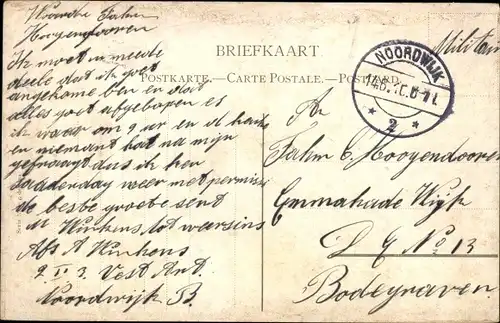 Waarde Fahm
Hooyendooren
Ik moet U mede
deele dat ik goet
angekome ben en dat
alles goet afgeloopen es
ik waar om 9 uur en d
en niemant hat na mijn
gefraagt dus ik ben
saderdag weer met
de beste groete sent
A Winkens tot weersins
Abs A Winkens
2 II 3. Vest Art.
Noordwijk B.
BRIEFKAART
POSTKARTE.—CARTE POSTALE.—POSTCARD.
NOORDWIJK
* 2 *
Militair
An
Fahm v. Hooyendooren
Emmakade Wijk
D G No 13
Bodegraven